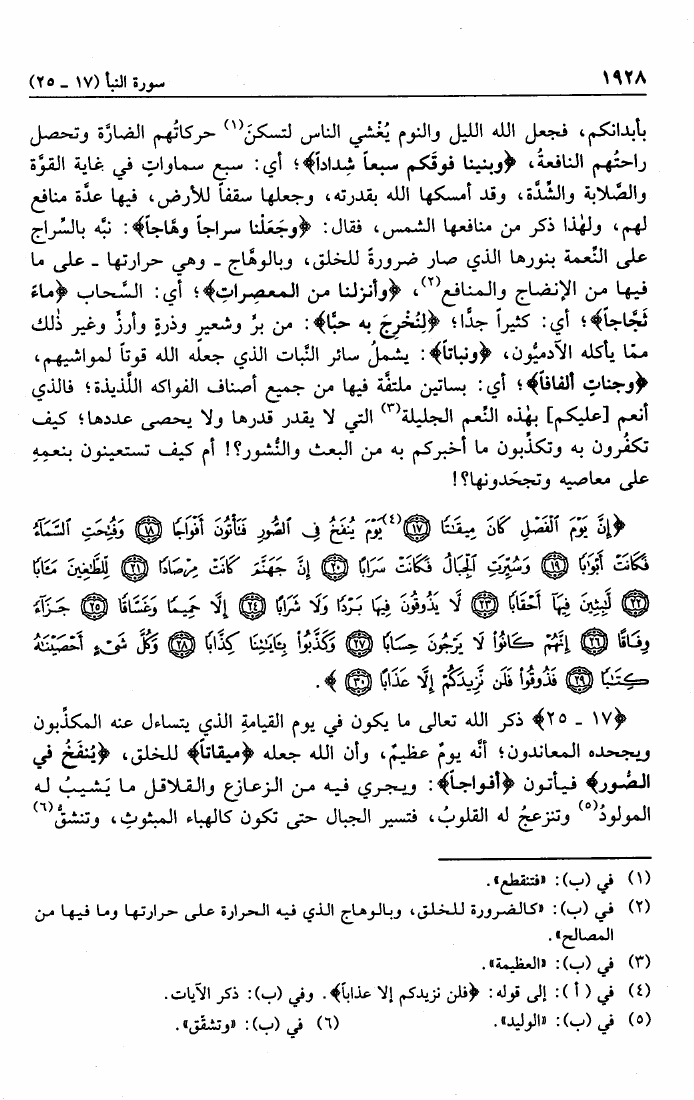 ١٩٢٨
سورة النبأ (١٧ ـ ٢٥)
بأبدانكم، فجعل الله الليل والنوم يُغْشي الناس لتسكنَ(١) حركاتُهم الضارَّة وتحصل
راحتُهم النافعةُ، ﴿وبنينا فوقَكم سبعاً شِداداً﴾؛ أي: سبع سماواتٍ في غاية القوَّة
والصَّلابة والشِّدَّة، وقد أمسكها الله بقدرته، وجعلها سقفاً للأرض، فيها عدَّة منافع
لهم، ولهٰذا ذكر من منافعها الشمس، فقال: ﴿وجَعَلْنا سراجاً وهَّاجاً﴾: نبَّه بالسِّراج
على النِّعمة بنورها الذي صار ضرورةً للخلق، وبالوهَّاج ـ وهي حرارتها ـ على ما
فيها من الإنضاج والمنافع(٢)، ﴿وأنزلنا من المعصرات﴾؛ أي: السَّحاب ﴿ماءً
ثَجَّاجاً﴾؛ أي: كثيراً جدًّا؛ ﴿لِنُخْرِجَ به حبًّا﴾: من برٍّ وشعيرٍ وذرةٍ وأرزٍّ وغير ذٰلك
ممّا يأكله الآدميُّون، ﴿ونباتاً﴾: يشملُ سائر النَّبات الذي جعله الله قوتاً لمواشيهم،
﴿وجناتٍ ألفافاً﴾؛ أي: بساتين ملتفَّة فيها من جميع أصناف الفواكه اللَّذيذة؛ فالذي
أنعم [عليكم] بهٰذه النِّعم الجليلة(٣) التي لا يقدر قدرها ولا يحصى عددها؛ كيف
تكفُرون به وتكذِّبون ما أخبركم به من البعث والنُّشور؟! أم كيف تستعينون بنعمِهِ
على معاصيه وتجحَدونها؟!
﴿إِنَّ يَوْمَ ٱلْفَصْلِ كَانَ مِيقَٰتًا ١٧ (٤)يَوْمَ يُنفَخُ فِى ٱلصُّورِ فَتَأْتُونَ أَفْوَاجًا ١٨ وَفُتِحَتِ ٱلسَّمَآءُ
فَكَانَتْ أَبْوَٰبًا ١٩ وَسُيِّرَتِ ٱلْجِبَالُ فَكَانَتْ سَرَابًا ٢٠ إِنَّ جَهَنَّمَ كَانَتْ مِرْصَادًا ٢١ لِّلطَّٰغِينَ مَـَٔابًا
٢٢ لَّٰبِثِينَ فِيهَآ أَحْقَابًا ٢٣ لَّا يَذُوقُونَ فِيهَا بَرْدًا وَلَا شَرَابًا ٢٤ إِلَّا حَمِيمًا وَغَسَّاقًا ٢٥ جَزَآءً
وِفَاقًا ٢٦ إِنَّهُمْ كَانُوا۟ لَا يَرْجُونَ حِسَابًا ٢٧ وَكَذَّبُوا۟ بِـَٔايَٰتِنَا كِذَّابًا ٢٨ وَكُلَّ شَىْءٍ أَحْصَيْنَٰهُ
كِتَٰبًا ٢٩ فَذُوقُوا۟ فَلَن نَّزِيدَكُمْ إِلَّا عَذَابًا ٣٠ ﴾.
﴿١٧ ـ ٢٥﴾ ذكر الله تعالى ما يكون في يوم القيامةِ الذي يتساءل عنه المكذِّبون
ويجحده المعاندون؛ أنَّه يومٌ عظيمٌ، وأن الله جعله ﴿ميقاتاً﴾ للخلق، ﴿يُنفَخُ في
الصُّور﴾ فيأتون ﴿أفواجاً﴾: ويجري فيه من الزعازع والقلاقل ما يَشيبُ له
المولودُ(٥) وتنزعجُ له القلوبُ، فتسير الجبال حتى تكون كالهباء المبثوثِ، وتنشقُّ(٦)
(١) في (ب): «فتنقطع».
(٢) في (ب): «كالضرورة للخلق، وبالوهاج الذي فيه الحرارة على حرارتها وما فيها من
المصالح».
(٣) في (ب): «العظيمة».
(٤) في ( أ ): إلى قوله: ﴿فلن نزيدكم إلا عذاباً﴾. وفي (ب): ذكر الآيات.
(٥) في (ب): «الوليد». (٦) في (ب): «وتشقّق».